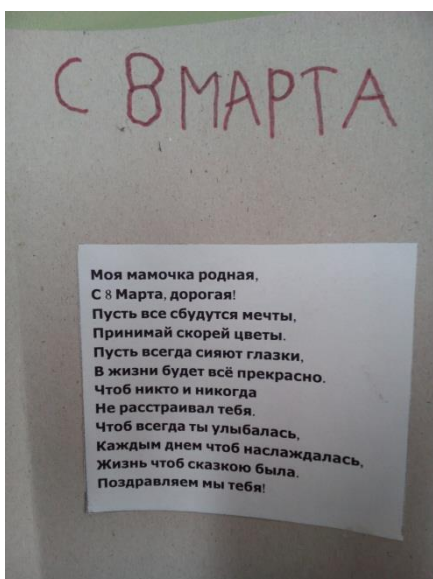 С 8 МАРТА
Моя мамочка родная,
С 8 Марта, дорогая!
Пусть все сбудутся мечты,
Принимай скорей цветы.
Пусть всегда сияют глазки,
В жизни будет всё прекрасно.
Чтоб никто и никогда
Не расстраивал тебя.
Чтоб всегда ты улыбалась,
Каждым днем чтоб наслаждалась,
Жизнь чтоб сказкою была.
Поздравляем мы тебя!